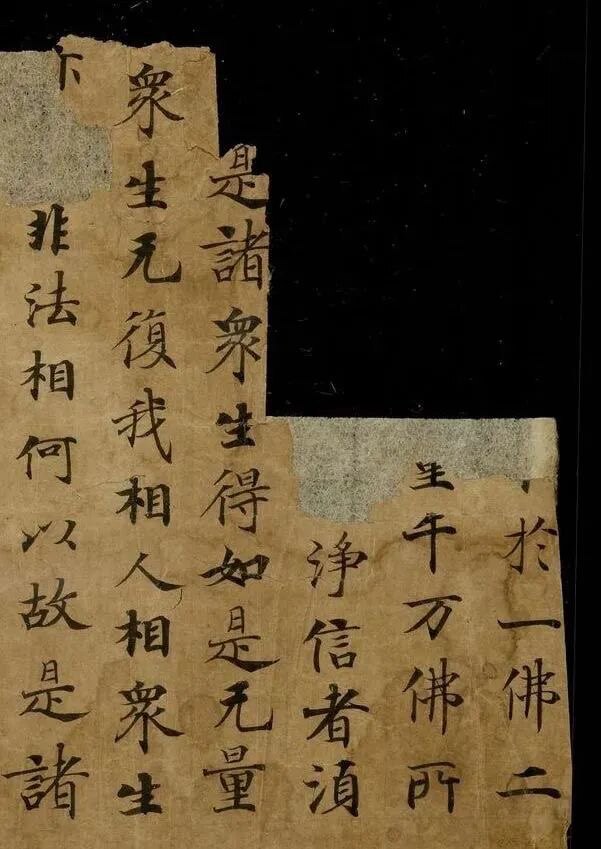 於一佛二
千万佛所
淨信者湏
是諸衆生得如是无量
衆生无復我相人相衆生
非法相何以故是諸